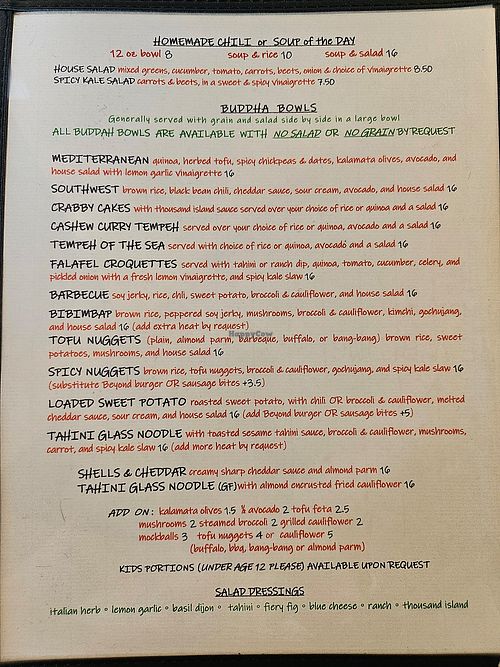 HOMEMADE CHILI or SOUP of the DAY
12 oz bowl 8 soup & rice 10 soup & salad 16
HOUSE SALAD mixed greens, cucumber, tomato, carrots, beets, onion & choice of vinaigrette 8.50
SPICY KALE SALAD carrots & beets, in a sweet & spicy vinaigrette 7.50
BUDDHA BOWLS
Generally served with grain and salad side by side in a large bowl
ALL BUDDAH BOWLS ARE AVAILABLE WITH NO SALAD OR NO GRAIN BY REQUEST
MEDITERRANEAN quinoa, herbed tofu, spicy chickpeas & dates, kalamata olives, avocado, and
house salad with lemon garlic vinaigrette 16
SOUTHWEST brown rice, black bean chili, cheddar sauce, sour cream, avocado, and house salad 16
CRABBY CAKES with thousand island sauce served over your choice of rice or quinoa and a salad 16
CASHEW CURRY TEMPEH served over your choice of rice or quinoa, avocado and a salad 16
TEMPEH OF THE SEA served with choice of rice or quinoa, avocado and a salad 16
FALAFEL CROQUETTES served with tahini or ranch dip, quinoa, tomato, cucumber, celery, and
pickled onion with a fresh lemon vinaigrette, and spicy kale slaw 16
BARBECUE soy jerky, rice, chili, sweet potato, broccoli & cauliflower, and house salad 16
BIBIMBAP brown rice, peppered soy jerky, mushrooms, broccoli & cauliflower, kimchi, gochujang,
and house salad 16 (add extra heat by request)
HappyCow
TOFU NUGGETS (plain, almond parm, barbeque, buffalo, or bang-bang) brown rice, sweet
potatoes, mushrooms, and house salad 16
SPICY NUGGETS brown rice, tofu nuggets, broccoli & cauliflower, gochujang, and spicy kale slaw 16
(substitute Beyond burger OR sausage bites +3.5)
LOADED SWEET POTATO roasted sweet potato, with chili OR broccoli & cauliflower, melted
cheddar sauce, sour cream, and house salad 16 (add Beyond burger OR sausage bites +5)
TAHINI GLASS NOODLE with toasted sesame tahini sauce, broccoli & cauliflower, mushrooms,
carrot, and spicy kale slaw 16 (add more heat by request)
SHELLS & CHEDDAR creamy sharp cheddar sauce and almond parm 16
TAHINI GLASS NOODLE (GF) with almond encrusted fried cauliflower 16
ADD ON: kalamata olives 1.5 ½ avocado 2 tofu feta 2.5
mushrooms 2 steamed broccoli 2 grilled cauliflower 2
mockballs 3 tofu nuggets 4 or cauliflower 5
(buffalo, bbq, bang-bang or almond parm)
KIDS PORTIONS (UNDER AGE 12 PLEASE) AVAILABLE UPON REQUEST
SALAD DRESSINGS
italian herb ° lemon garlic ° basil dijon ° tahini ° fiery fig ° blue cheese ° ranch ° thousand island